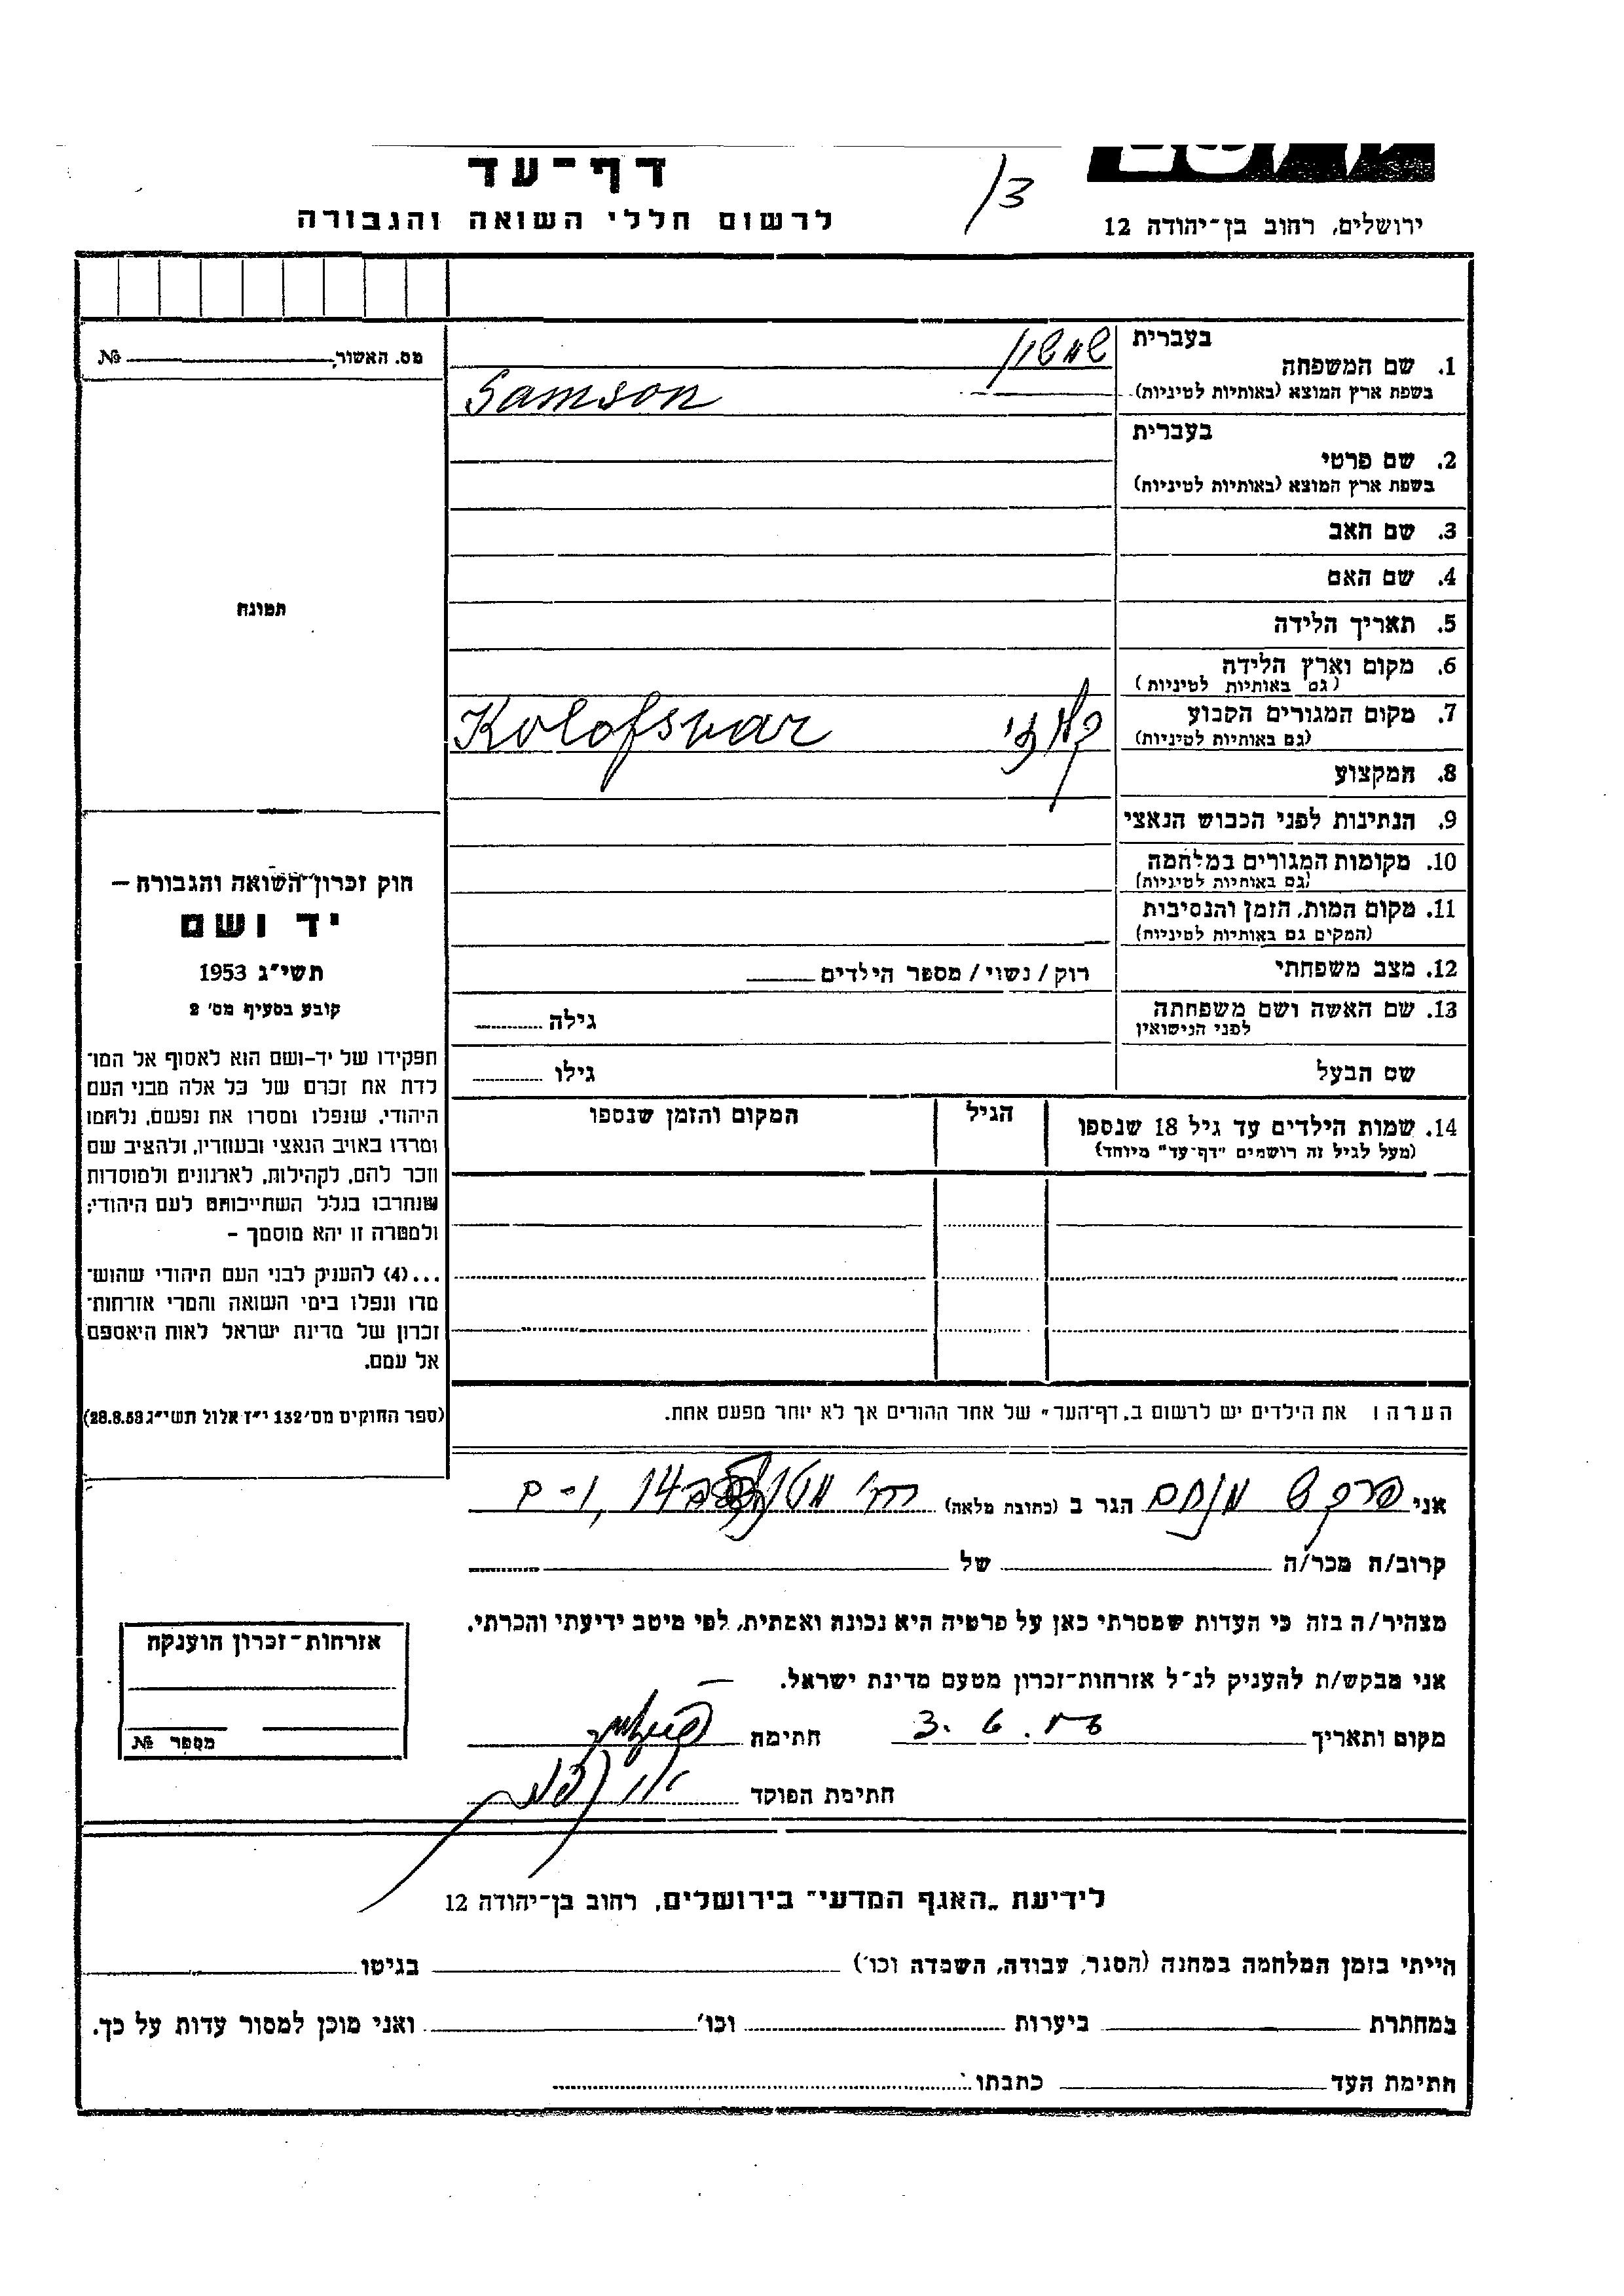 דף-עד
לרשום חללי השואה והגבורה
13
ירושלים, רחוב בן-יהודה 12
מס. האשור, №
1. שם המשפחה
בעברית
שמשון
בשפת ארץ המוצא (באותיות לטיניות)
Samson
2. שם פרטי
בעברית
בשפת ארץ המוצא (באותיות לטיניות)
3. שם האב
4. שם האם
5. תאריך הלידה
6. מקום וארץ הלידה
(גם באותיות לטיניות)
7. מקום המגורים הקבוע
(גם באותיות לטיניות)
Kolofsvar
8. המקצוע
9. הנתינות לפני הכבוש הנאצי
10. מקומות המגורים במלחמה
(גם באותיות לטיניות)
11. מקום המות, הזמן והנסיבות
(המקום גם באותיות לטיניות)
12. מצב משפחתי
רוק/נשוי/מספר הילדים
13. שם האשה ושם משפחתה
לפני הנישואין
גילה
שם הבעל
גילו
14. שמות הילדים עד גיל 18 שנספו
(מעל לגיל זה רושמים "דף-עד" מיוחד)
הגיל
המקום והזמן שנספו
תמונה
חוק זכרון השואה והגבורה –
יד ושם
תשי"ג 1953
קובע בסעיף מס' 2
תפקידו של יד-ושם הוא לאסוף אל המו־
לדת את זכרם של כל אלה מבני העם
היהודי, שנפלו ומסרו את נפשם, נלחמו
ומרדו באויב הנאצי ובעוזריו, ולהציב שם
וזכר להם, לקהילות, לארגונים ולמוסדות
שנחרבו בגלל השתייכותם לעם היהודי;
ולמטרה זו יהא מוסמך –
...(4) להעניק לבני העם היהודי שהוש־
מדו ונפלו בימי השואה והמרי אזרחות־
זכרון של מדינת ישראל לאות היאספם
אל עמם.
(ספר החוקים מס' 132 י"ז אלול תשי"ג 28.8.53)
הערה: את הילדים יש לרשום ב„דף-העד" של אחד ההורים אך לא יותר מפעם אחת.
אני מנחם הגר ב (כתובת מלאה) רח' 14, י-ם
קרוב/ה מכר/ה של
מצהיר/ה בזה כי העדות שמסרתי כאן על פרטיה היא נכונה ואמתית, לפי מיטב ידיעתי והכרתי.
אני מבקש/ת להעניק לנ"ל אזרחות-זכרון מטעם מדינת ישראל.
מקום ותאריך 3.6. חתימה
חתימת הפוקד
אזרחות-זכרון הוענקה
מספר №
לידיעת „האגף המדעי" בירושלים, רחוב בן-יהודה 12
הייתי בזמן המלחמה במחנה (הסגר, עבודה, השמדה וכו') בגיטו
במחתרת ביערות וכו' ואני מוכן למסור עדות על כך.
חתימת העד כתבתו